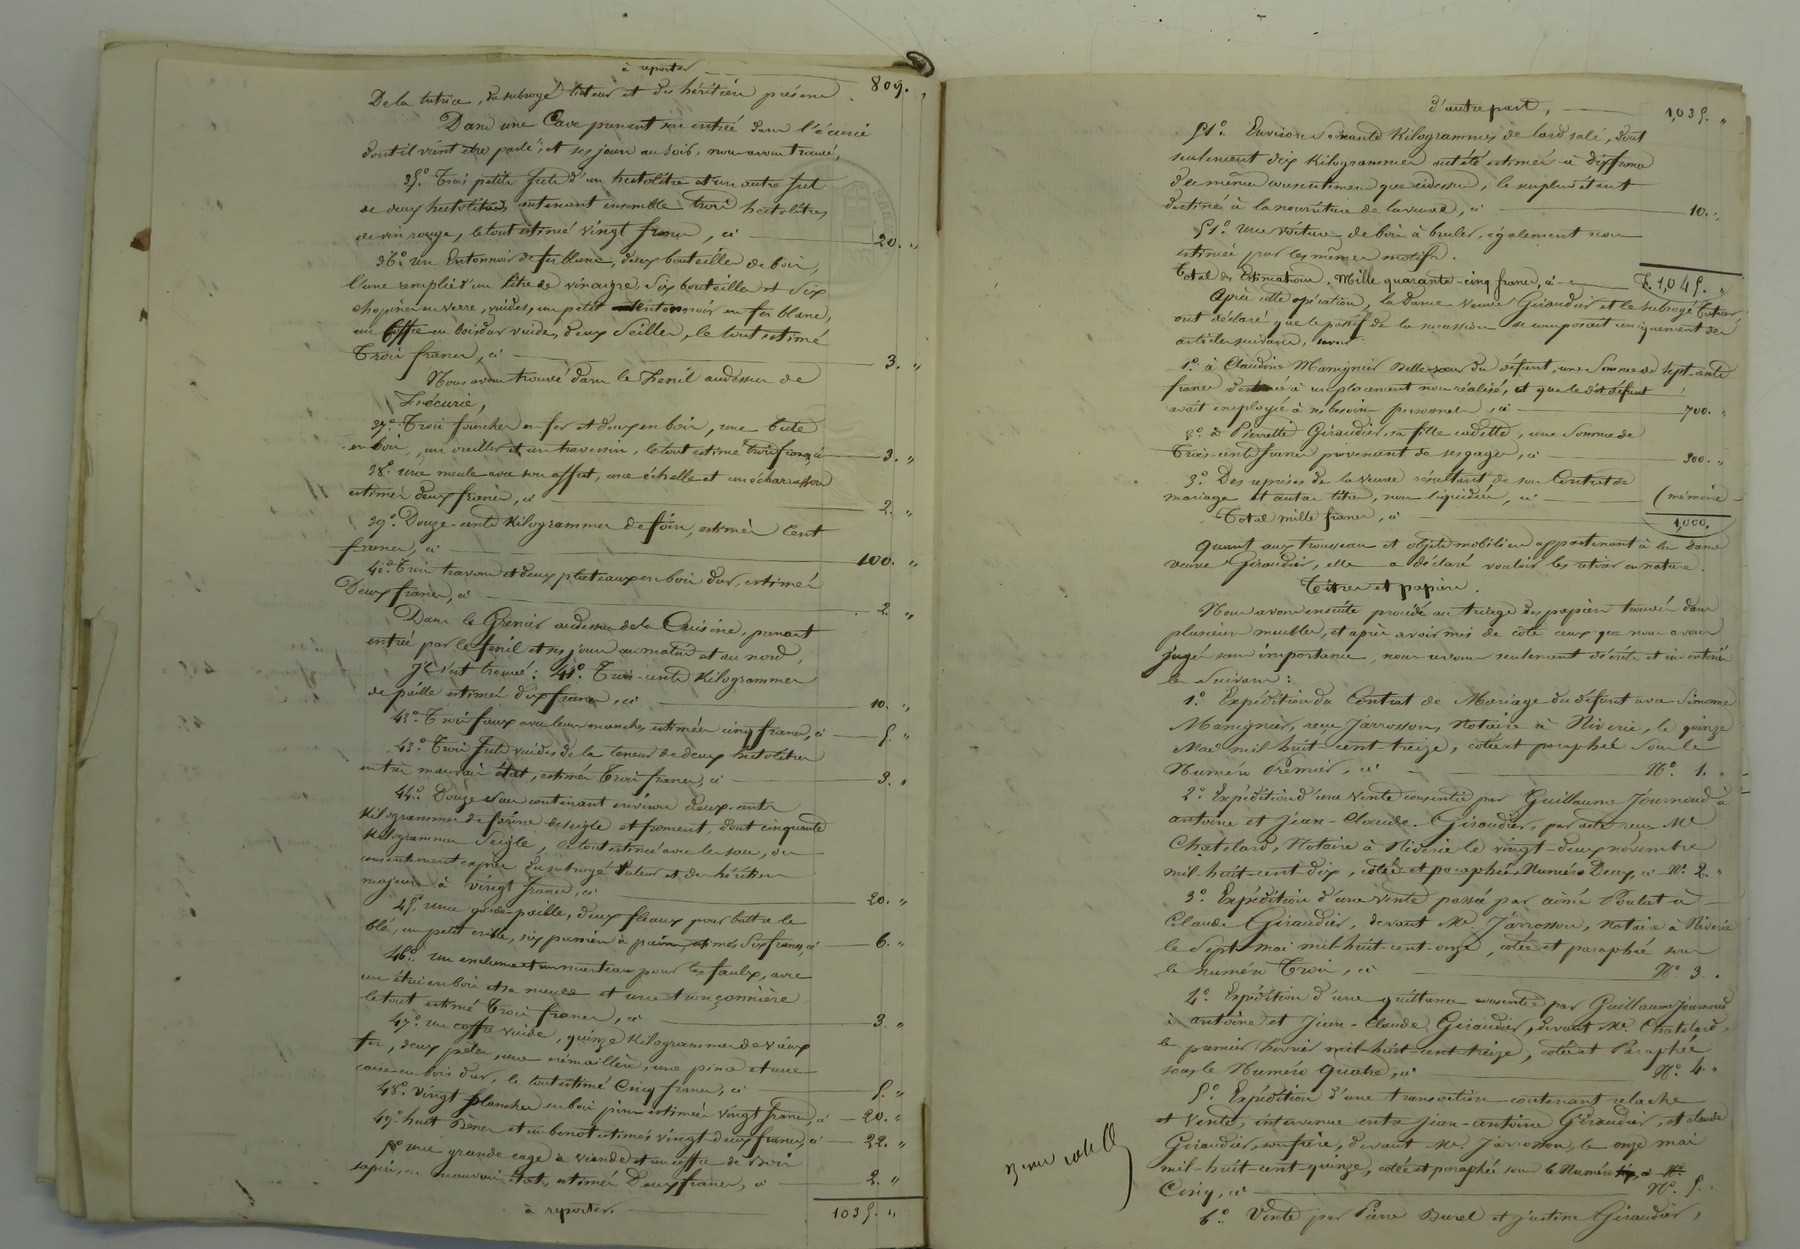 à reporter 809. "
De la tutrice, du subrogé tuteur et des héritiers présens
Dans une Cave prenant son entrée dans l'écurie
dont il vient être parlé, et ses jours au soir, nous avons trouvé,
35.° Trois petits futs d'un hectolitre et un autre fut
de deux hectolitres contenant ensemble trois hectolitres
de vin rouge, le tout estimé vingt francs, ci 20. "
36.° un Entonnoir de fer blanc, deux bouteilles de bois,
l'une remplie d'un litre de vinaigre, six bouteilles et six
chopines en verre, vuides, un petit entonnoir en fer blanc,
un coffre en bois dur vuide, deux seilles, le tout estimé
Trois francs, ci 3. "
Nous avons trouvé dans le Fenil audessus de
L'écurie,
37.° Trois fourches en fer et deux en bois, une
en bois, un oreiller et un traversin, le tout estimé trois francs, ci 3. "
38.° une meule avec son affut, une échelle et un écharasson
estimés deux francs, ci 2. "
39.° Douze cents Kilogrammes de foin, estimés Cent
francs, ci 100. "
40.° Trois travons et deux plateaux en bois dur, estimés
Deux francs, ci 2. "
Dans le Grenier audessus de la Cuisine, prenant
entrée par le fenil et ses jours au matin et au nord,
s'est trouvé: 41.° Trois-cents Kilogrammes
de paille estimés dix francs, ci 10. "
42.° Trois faux avec leurs manches estimées cinq francs, ci 5. "
43.° Trois futs vuides de la teneur de deux hectolitres
en très mauvais état, estimés Trois francs, ci 3. "
44.° Douze sacs contenant environ deux-cents
Kilogrammes de farine de seigle et froment, dont cinquante
Kilogrammes seigle, le tout estimé avec les sacs, du
consentement exprès du subrogé tuteur et des héritiers
majeurs à vingt francs, ci 20. "
45.° une paille, deux fleaux pour battre le
blé, un petit crible, six paniers à estimés Six francs, ci 6. "
46.° un enclume et un marteau pour les faulx, avec
un étui en bois et sa meule et une tronçonnière
le tout estimé Trois francs, ci 3. "
47.° un coffre vuide, quinze Kilogrammes de vieux
fer, deux pelles, une crémaillère, une pince et une
caisse en bois dur, le tout estimé Cinq francs, ci 5. "
48.° Vingt planches en bois pin estimées vingt francs, ci 20. "
49.° huit Bènes et un benot estimés vingt-deux francs, ci 22. "
50.° une grande cage à viande et un coffre de bois
sapin, en mauvais état, estimés Deux francs, ci 2. "
à reporter. 1035. "
d'autre part, 1,035. "
51.° Environ soixante Kilogrammes de lard salé, dont
seulement dix Kilogrammes ont été estimés à dix francs
de même consentement que cidessus, le surplus étant
destiné à la nourriture de la veuve, ci 10. "
51.° une voiture de bois à bruler, également non
estimée, par les mêmes motifs.
Total des Estimations, Mille quarante-cinq francs, ci F. 1,045. "
Après cette opération, la Dame veuve Giraudier et le subrogé tuteur
ont déclaré que le passif de la succession se composait uniquement des
articles suivans, savoir
1.° à Claudine Manignier Belle-soeur du défunt, une Somme de Sept-cents
francs destinée à un placement non réalisé, et que le dit défunt
avait employée à ses besoins personnels, ci 700. "
2.° à Pierrette Giraudier, sa fille cadette, une Somme de
Trois-cents francs provenant de ses gages, ci 300. "
3.° Des reprises de la veuve résultant de son Contrat de
mariage et autres titres, non liquidées, ci (mémoire
Total mille francs, ci 1,000.
Quant aux trousseau et objets mobiliers appartenant à la Dame
veuve Giraudier, elle a déclaré vouloir les retirer en nature.
Titres et papiers.
Nous avons ensuite procédé au triage des papiers trouvés dans
plusieurs meubles, et après avoir mis de côté ceux que nous avons
jugés sans importance, nous avons seulement décrits et inventoriés
les Suivans:
1.° Expédition du Contrat de Mariage du défunt avec Simonne
Manignier, reçu Jarrosson, Notaire à Riverie, le quinze
Mai mil-huit-cent-treize, cotée et paraphée sous le
Numéro Premier, ci N.° 1. "
2.° Expédition d'une vente consentie par Guillaume Journoud à
antoine et Jean-Claude Giraudier, par acte reçu M.e
Chatelard, Notaire à Riverie le vingt-deux novembre
mil-huit-cent-dix, cotée et paraphée Numéro Deux, ci N.° 2. "
3.° Expédition d'une vente passée par aimé Poulat à
Claude Giraudier, devant M.e Jarrosson, Notaire à Riverie
le Sept mai mil-huit-cent-onze, cotée et paraphée sous
le numéro Trois, ci N.° 3. "
4.° Expédition d'une quittance consentie par Guillaume Journoud
à antoine et Jean-Claude Giraudier, devant M.e Chatelard,
le premier février mil-huit-cent-treize, cotée et Paraphée
sous le Numéro Quatre, ci N.° 4. "
5.° Expédition d'une transaction contenant relache
et Vente, intervenue entre Jean-antoine Giraudier, et claude
Giraudier, son frère, devant M.e Jarrosson, le onze mai
mil-huit-cent-quinze, cotée et paraphée sous le Numéro
Cinq, ci N.° 5. "
6.° Vente par Pierre Burel et Justine Giraudier,